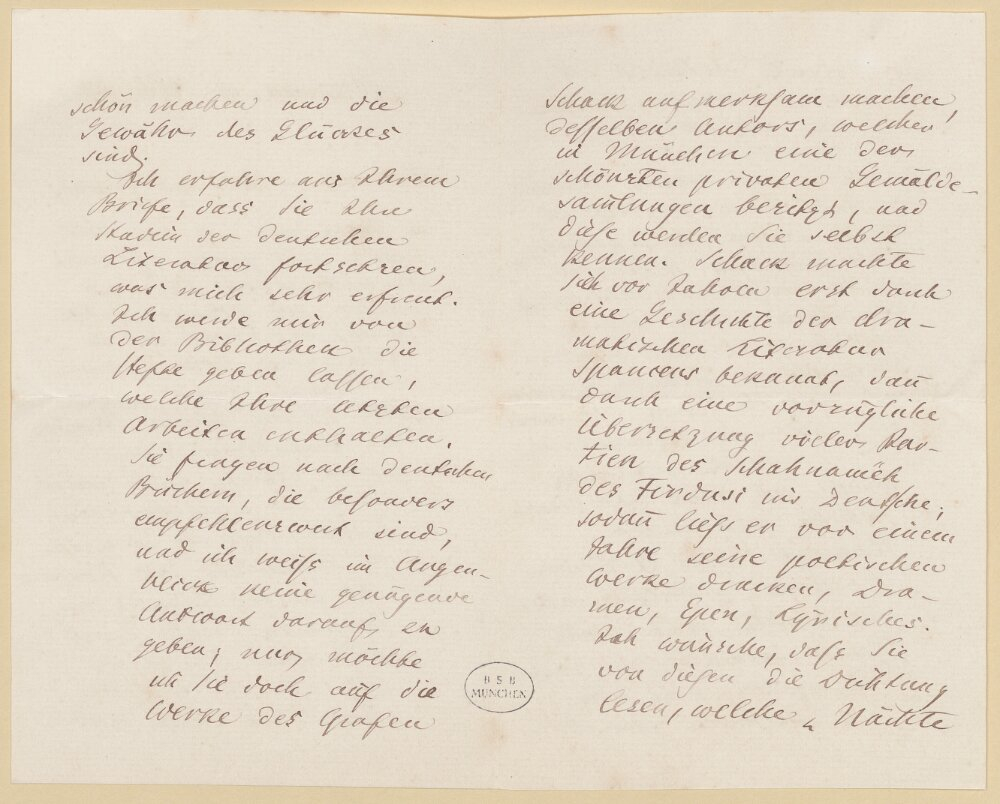 schön machen und die
Gewähr des Glückes
sind.
Ich erfahre aus Ihrem
Briefe, dass Sie Ihre
Studien der deutschen
Literatur fortsetzen,
was mich sehr erfreut.
Ich werde mir von
der Bibliothek die
Hefte geben lassen,
welche Ihre letzten
Arbeiten enthalten.
Sie fragen nach deutschen
Büchern, die besonders
empfehlenswert sind,
und ich weiß im Augen-
blick keine genügende
Antwort darauf zu
geben; nur möchte
ich Sie doch auf die
Werke des Grafen
Schack aufmerksam machen,
desselben Autors, welcher
in München eine der
schönsten privaten Gemälde-
samlungen besitzt, und
diese werden Sie selbst
kennen. Schack machte
sich vor Jahren erst durch
eine Geschichte der dra-
matischen Literatur
Spaniens bekannt, dan̄
durch eine vorzügliche
Übersetzung vieler Par-
tien des Schahnaméh
des Firdusi ins Deutsche;
sodan̄ ließ er vor einem
Jahre seine poetischen
Werke drucken, Dra-
men, Epen, Lyrisches.
Ich wünsche, daß Sie
von diesen die Dichtung
lesen, welche „Nächte
B S B
MÜNCHEN